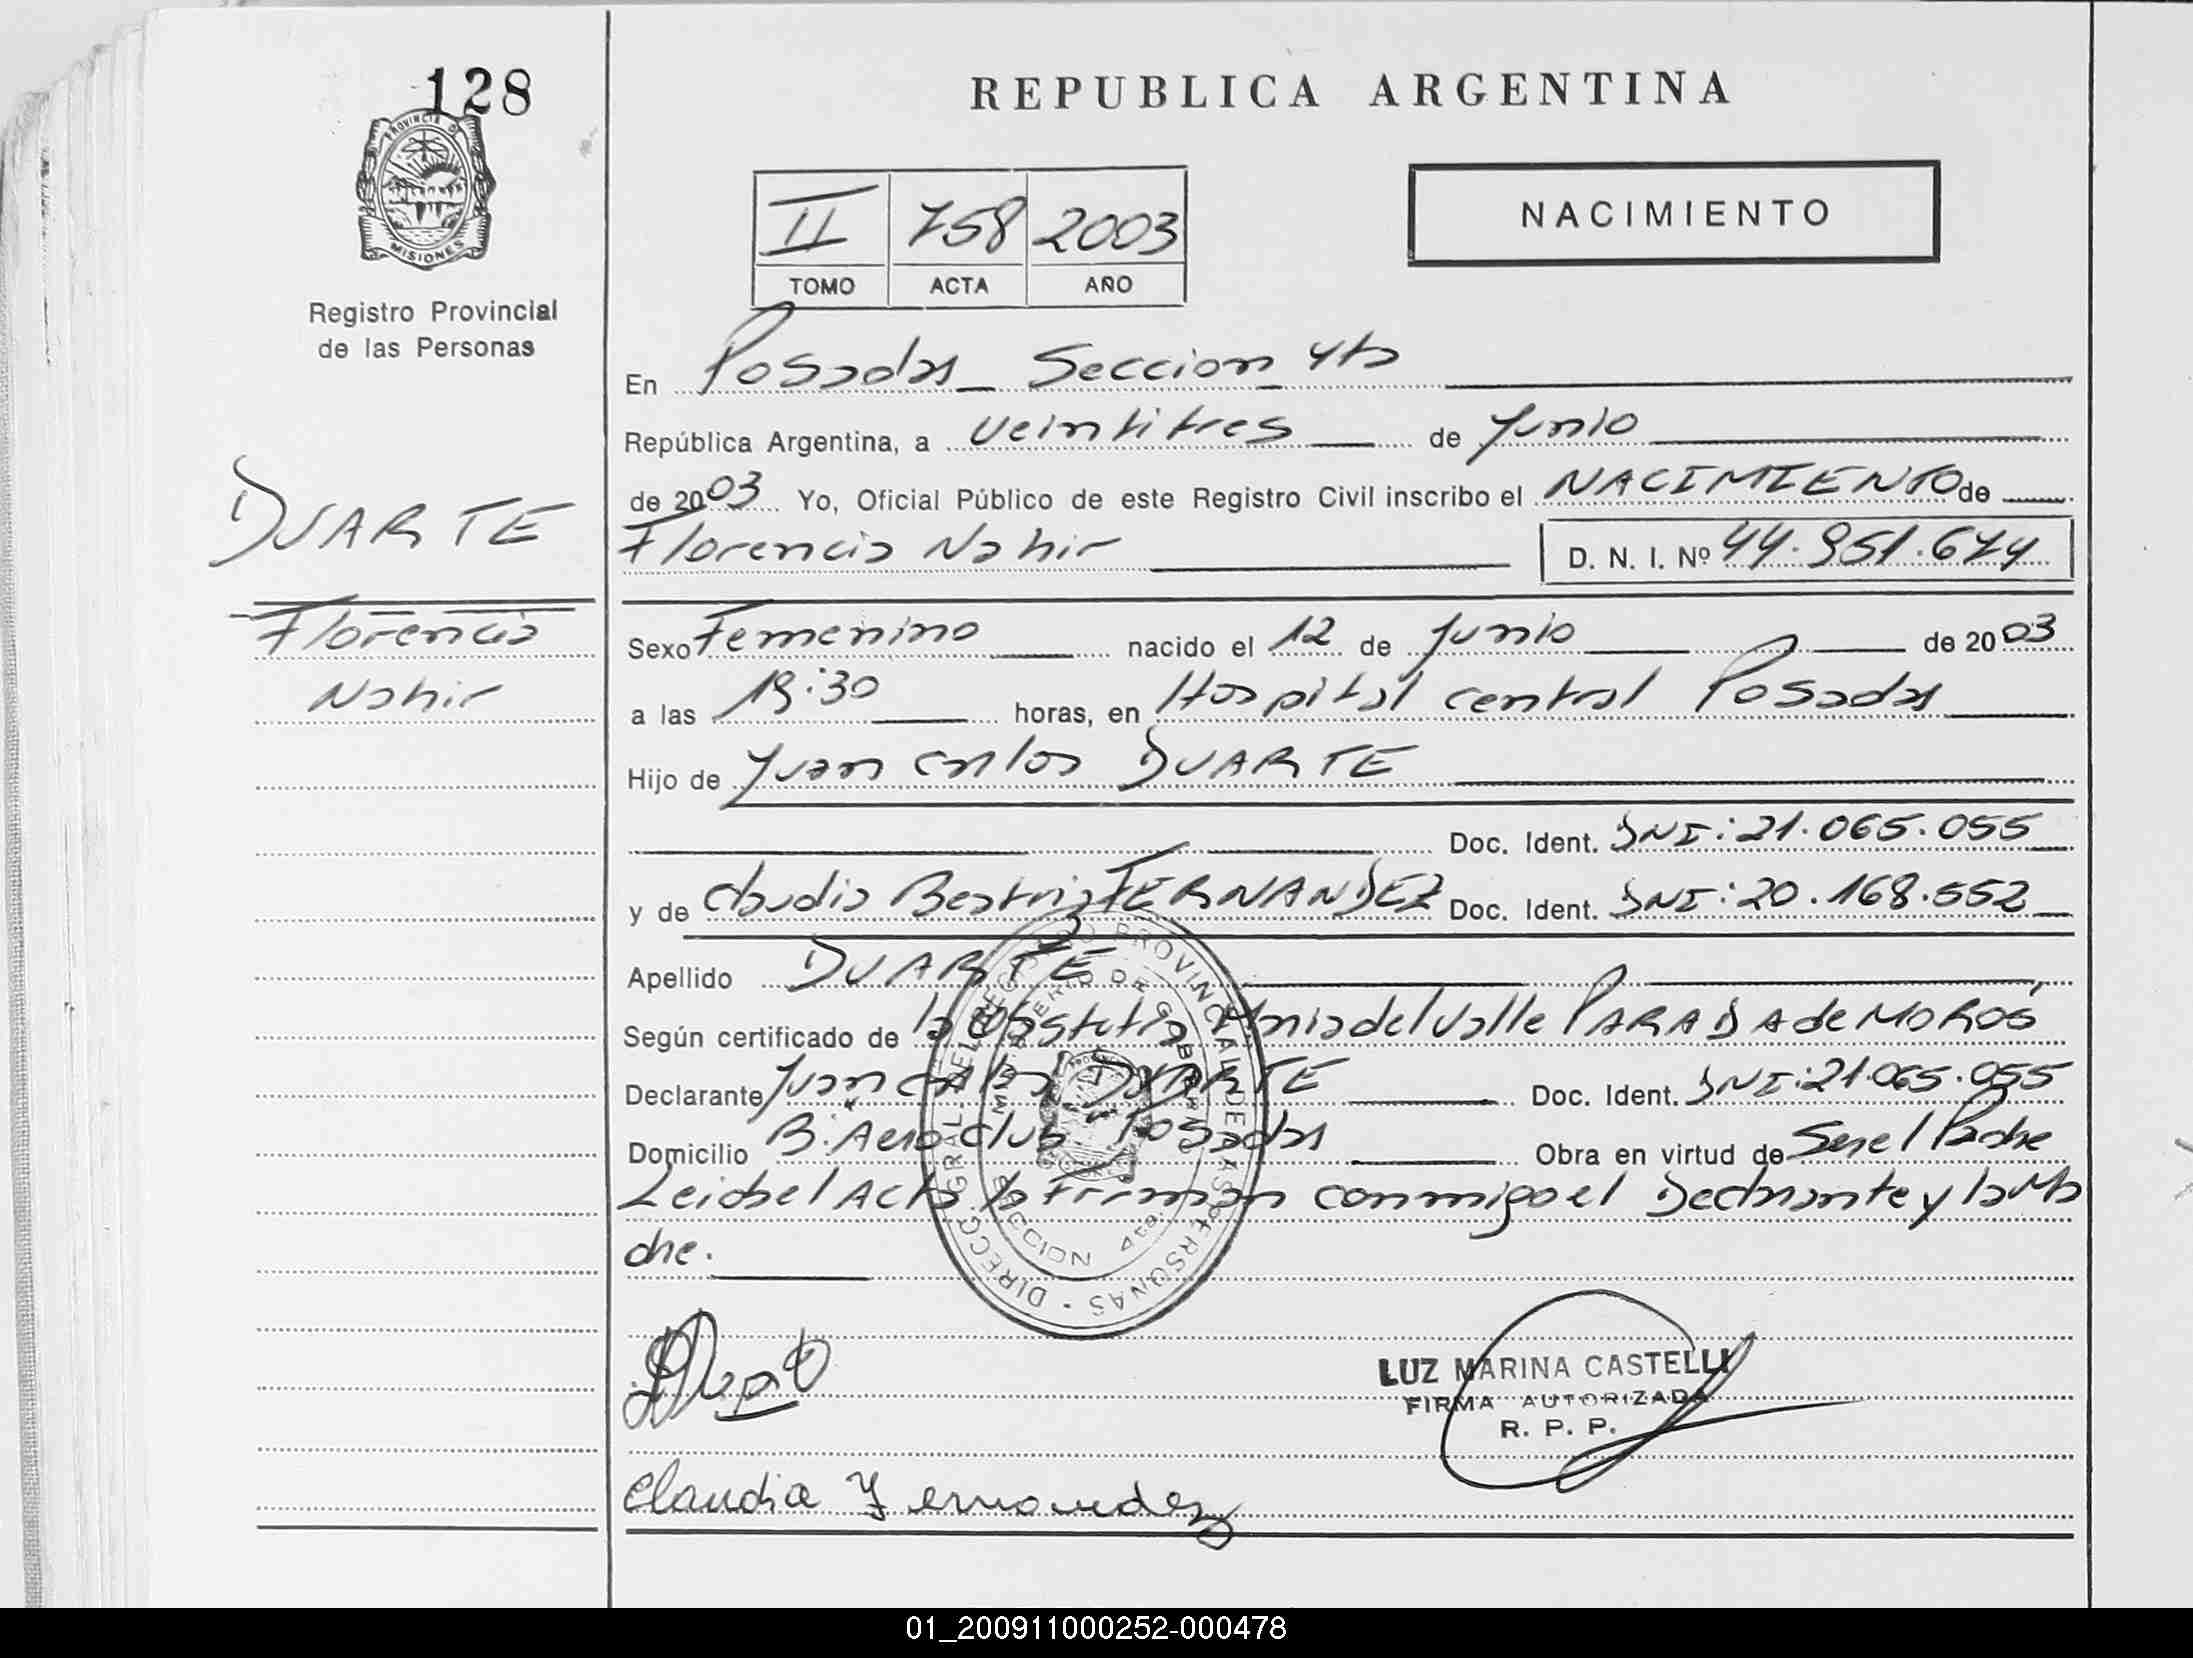 128
PROVINCIA DE
MISIONES
Registro Provincial
de las Personas
DUARTE
Florencia
Nahir
REPUBLICA ARGENTINA
II 758 2003
TOMO ACTA AÑO
NACIMIENTO
En Posadas Seccion 4ta
República Argentina, a veintitres de Junio
de 2003 Yo, Oficial Público de este Registro Civil inscribo el NACIMIENTO de
Florencia Nahir D. N. I. Nº 44.951.674
Sexo Femenino nacido el 12 de Junio de 2003
a las 19:30 horas, en Hospital central Posadas
Hijo de Juan Carlos DUARTE
Doc. Ident. DNI: 21.065.055
y de Claudia Beatriz FERNANDEZ Doc. Ident. DNI: 20.168.552
Apellido DUARTE
Según certificado de la Obstetra Ania del Valle PARADA de MOROS
Declarante Juan Carlos DUARTE Doc. Ident. DNI: 21.065.055
Domicilio B. Aero club Posadas Obra en virtud de Ser el Padre
Leida el Acta la Firman conmigo el Declarante y la Ma
dre.
DIRECC. GRAL. DEL REGISTRO PROVINCIAL DE LAS PERSONAS
MINISTERIO DE GOBIERNO
SECCION 4ta.
LUZ MARINA CASTELLI
FIRMA AUTORIZADA
R. P. P.
Claudia Fernandez
01_200911000252-000478